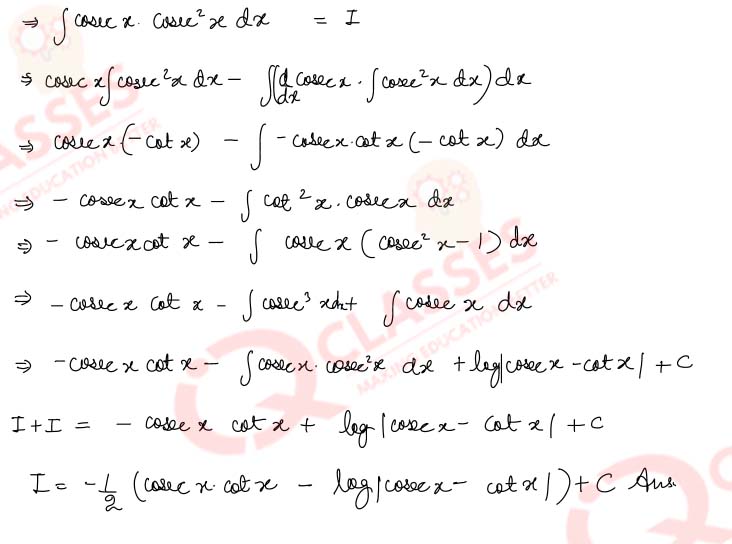 ⇒ ∫ cosec x · cosec² x dx = I
⇒ cosec x ∫ cosec² x dx − ∫(d/dx cosec x · ∫ cosec² x dx) dx
⇒ cosec x · (−cot x) − ∫ −cosec x · cot x (−cot x) dx
⇒ − cosec x cot x − ∫ cot² x · cosec x dx
⇒ − cosec x cot x − ∫ cosec x (cosec² x − 1) dx
⇒ −cosec x cot x − ∫ cosec³ x dx + ∫ cosec x dx
⇒ −cosec x cot x − ∫ cosec x · cosec² x dx + log|cosec x − cot x| + C
I + I = − cosec x cot x + log|cosec x − cot x| + C
I = −1/2 (cosec x · cot x − log|cosec x − cot x|) + C Ans.
CLASSES
MAKING EDUCATION BETTER